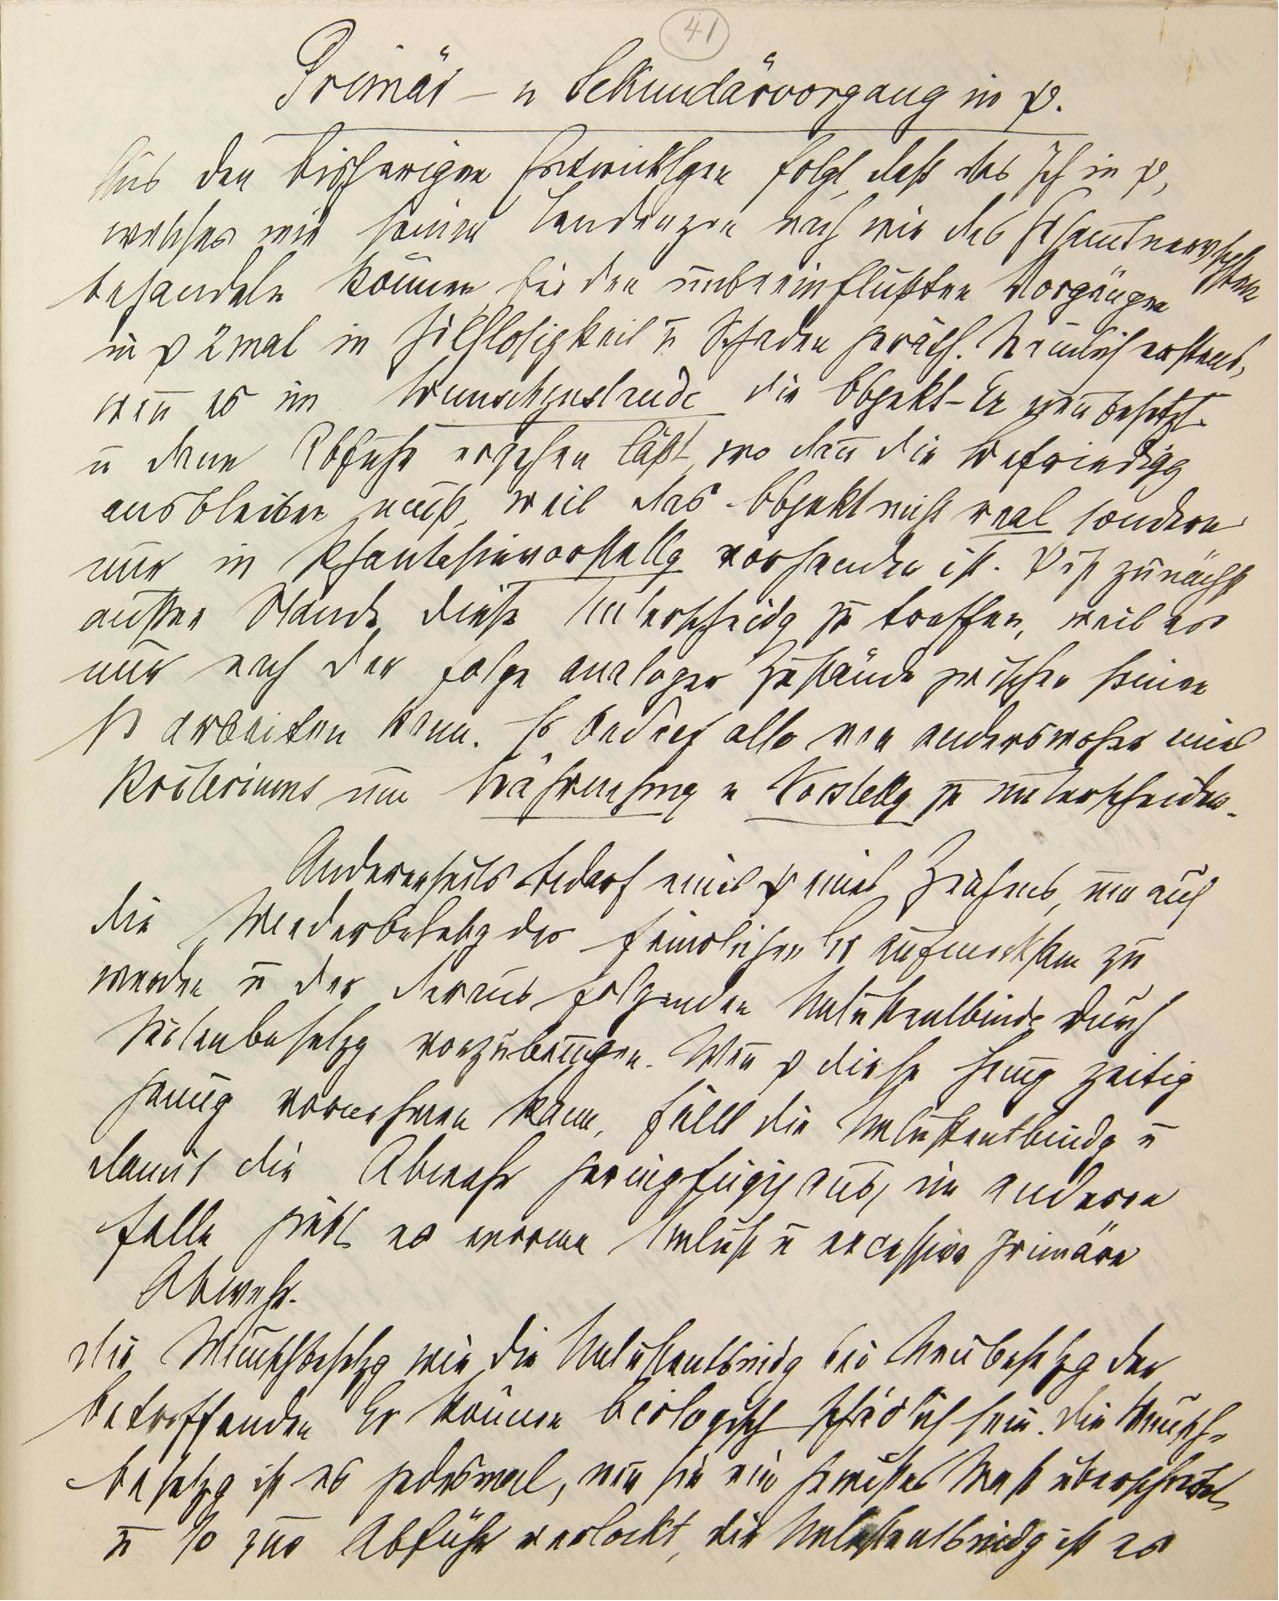 41
Primär – u Sekundärvorgang in ψ.
Aus den bisherigen Entwicklgen folgt, daß das Ich in ψ,
welches wir seinen Tendenzen nach wie das Gesamtnervsystem
behandeln können, bei den unbeeinflußten Vorgängen
in ψ 2mal in Hilflosigkeit u Schaden gerät. Nämlich erstens,
wenn es im Wunschzustande die Objekt-Er neu besetzt
u dann Abfuhr ergehen läßt, wo dann die Befriedigg
ausbleiben muß, weil das Objekt nicht real sondern
nur in Phantasievorstellg vorhanden ist. ψ ist zunächst
außer Stande, diese Unterscheidg zu treffen, weil es
nur nach der Folge analoger Zustände zwischen seinen
N arbeiten kann. Es bedarf also von anderswoher eines
Kriteriums um Wahrnehmg u Vorstellg zu unterscheiden.
Andererseits bedarf ψ eines Zeichens, um auf
die Wiederbesetzg des feindlichen Er aufmerksam zu
werden u der daraus folgenden Unlustentbindg durch
Seitenbesetzg vorzubeugen. Wenn ψ diese Hemmg zeitig
genug vornehmen kann, fällt die Unlustentbindg u
damit die Abwehr geringfügig aus, im anderen
Falle gibt es enorme Unlust u excessive primäre
Abwehr.
Die Wunschbesetzg wie die Unlustentbindg bei Neubesetzg der
betreffenden Er können biologisch schädlich sein. Die Wunsch-
besetzg ist es jedesmal, wenn sie ein gewisses Maß überschreitet
u so zur Abfuhr verlockt, die Unlustentbindg ist es